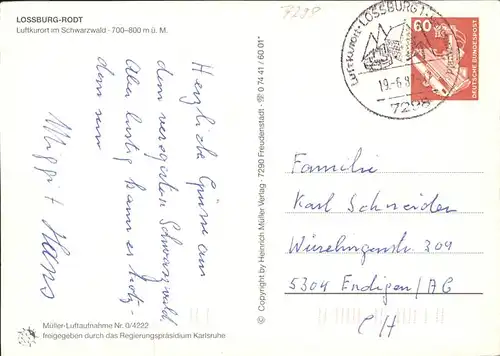 LOSSBURG-RODT
Luftkurort im Schwarzwald - 700–800 m ü. M.
7298
Luftkurort · LOSSBURG 1 ·
19.-6.8
7298
60
DEUTSCHE BUNDESPOST
Herzliche Grüsse aus
dem verregneten Schwarzwald
Aber lustig kann es trotz-
dem sein
Hans
Familie
Karl Schneider
304
5304 Endigen/AG
CH
© Copyright by Heinrich Müller Verlag - 7290 Freudenstadt - ☏ 0 74 41 / 60 01*
Müller-Luftaufnahme Nr. 0/4222
freigegeben durch das Regierungspräsidium Karlsruhe